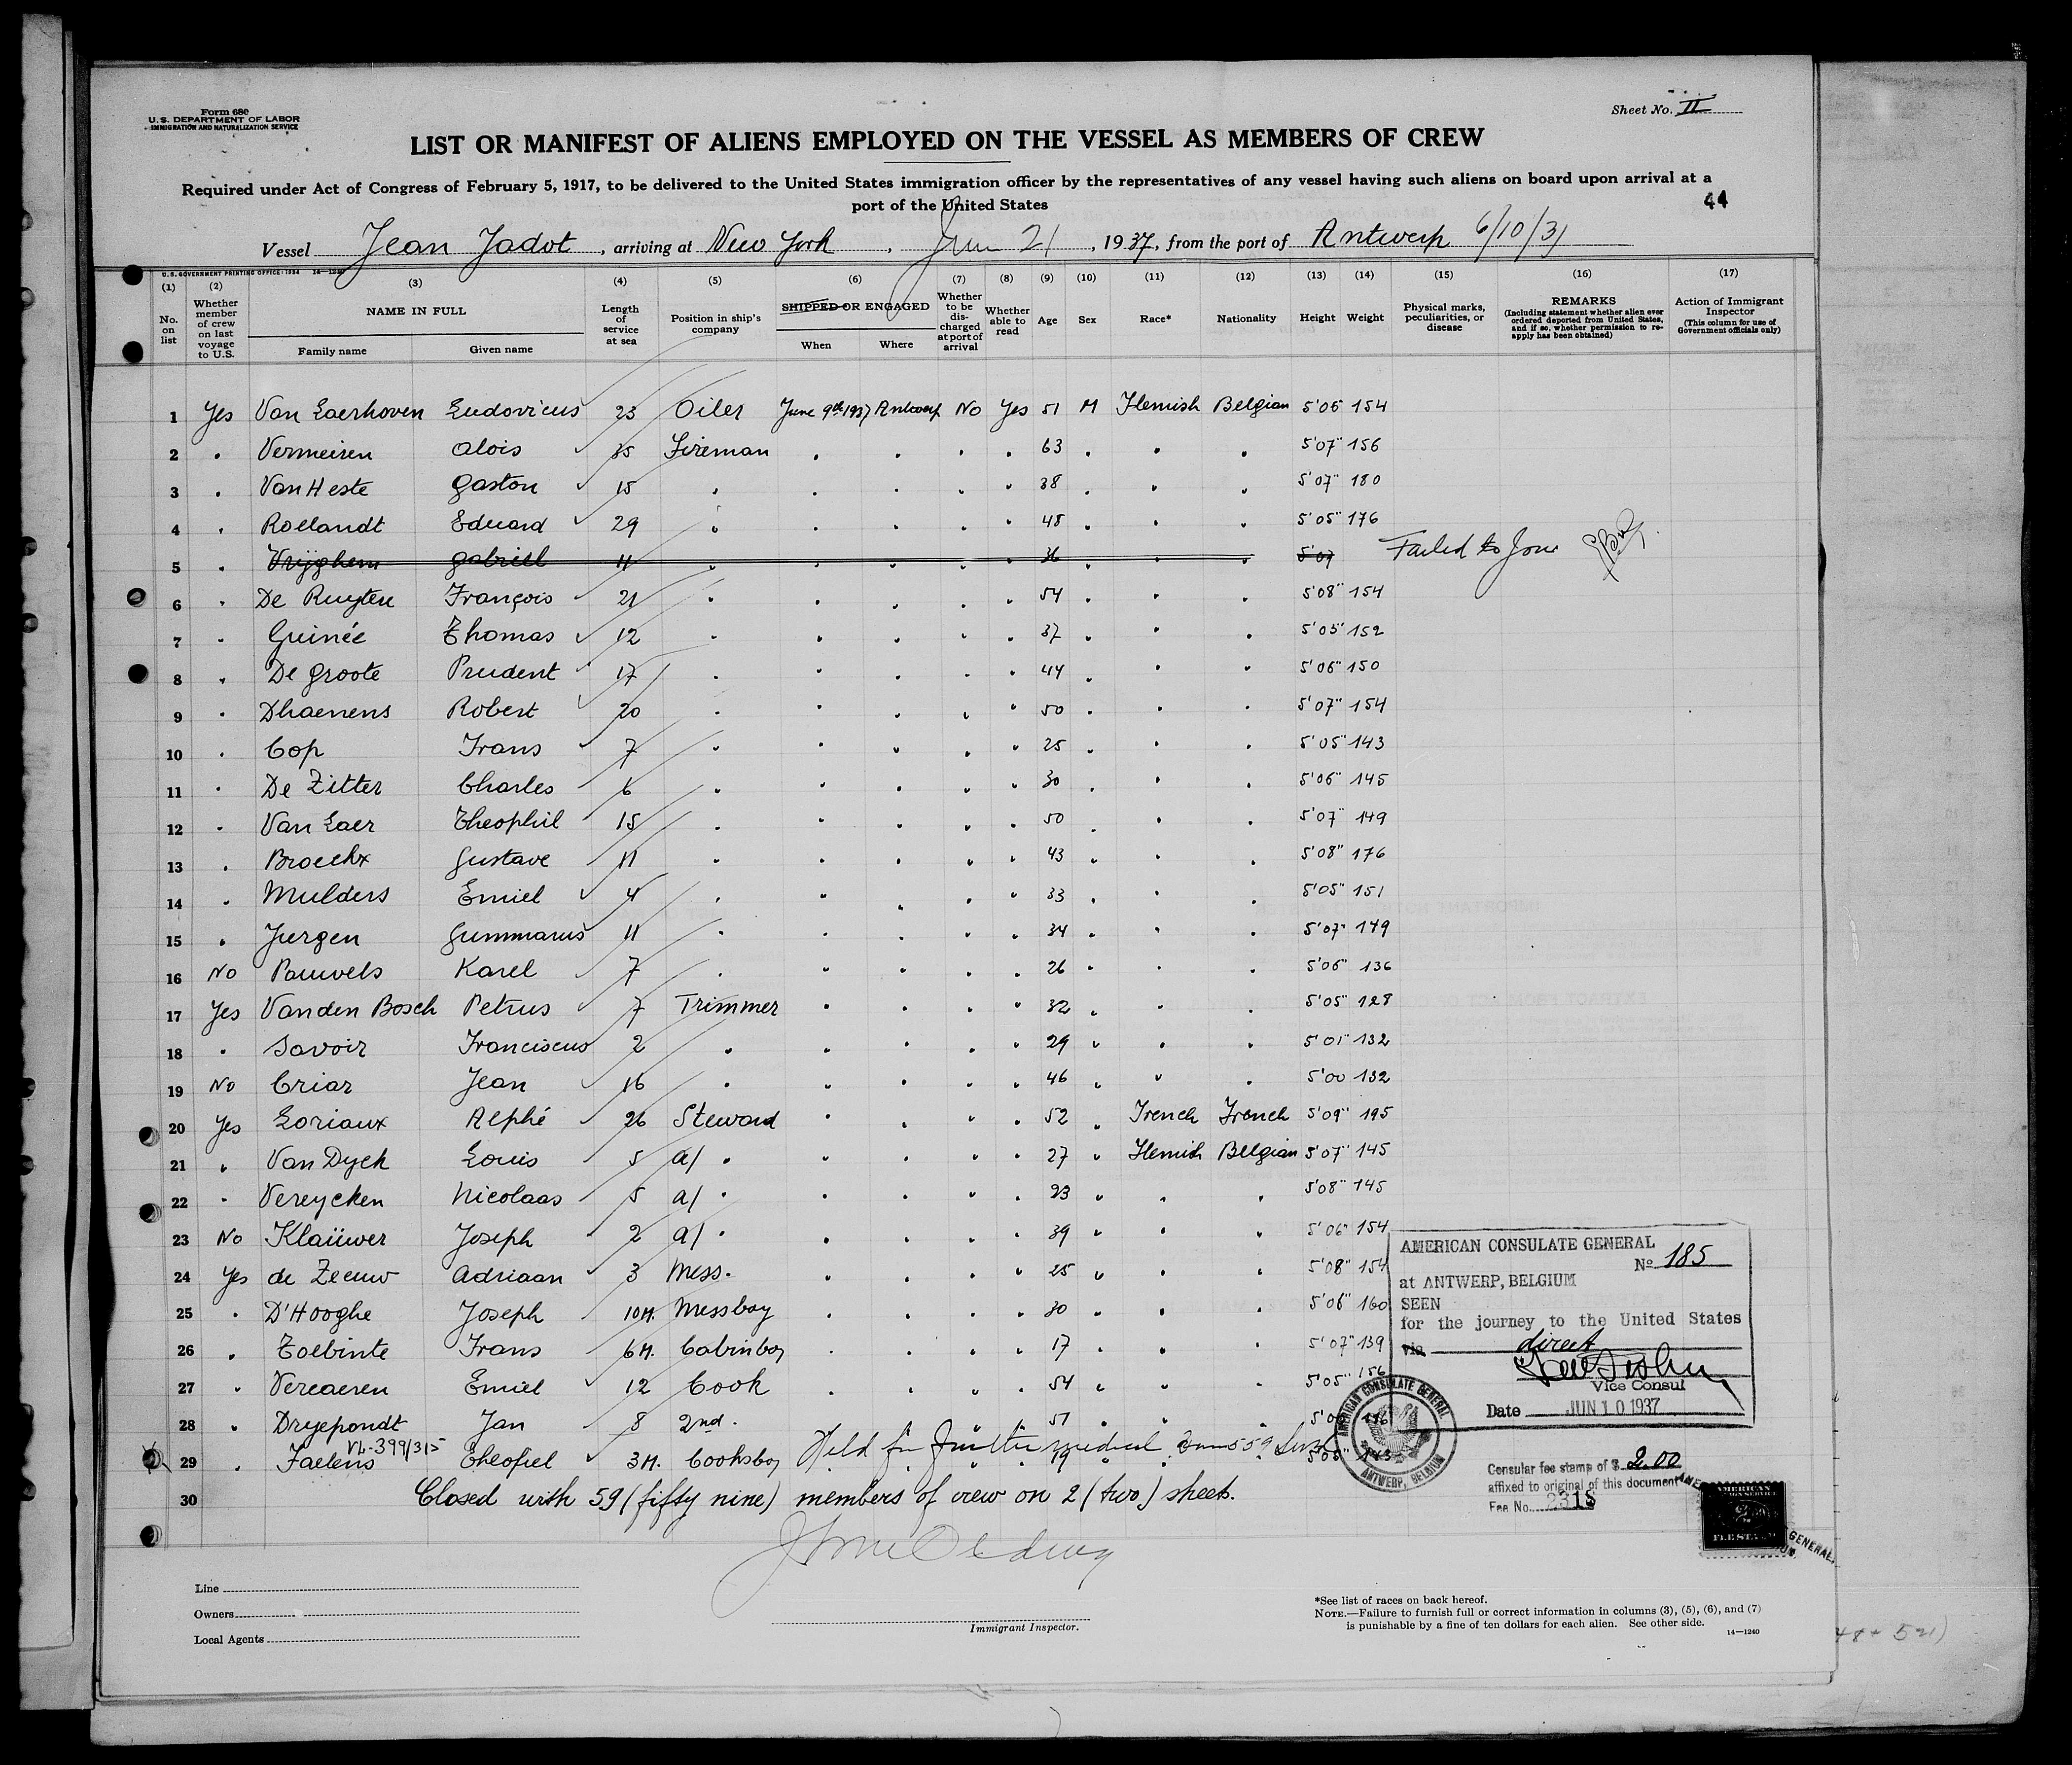 Form 680
U.S. DEPARTMENT OF LABOR
IMMIGRATION AND NATURALIZATION SERVICE
Sheet No. II
LIST OR MANIFEST OF ALIENS EMPLOYED ON THE VESSEL AS MEMBERS OF CREW
Required under Act of Congress of February 5, 1917, to be delivered to the United States immigration officer by the representatives of any vessel having such aliens on board upon arrival at a
port of the United States
44
Vessel Jean Jadot, arriving at New York, June 21, 1937, from the port of Antwerp 6/10/37
U.S. GOVERNMENT PRINTING OFFICE: 1934 14—1240
(1) (2) (3) (4) (5) (6) (7) (8) (9) (10) (11) (12) (13) (14) (15) (16) (17)
No. on list
Whether member of crew on last voyage to U.S.
NAME IN FULL
Family name
Given name
Length of service at sea
Position in ship's company
SHIPPED OR ENGAGED
When
Where
Whether to be discharged at port of arrival
Whether able to read
Age
Sex
Race*
Nationality
Height
Weight
Physical marks, peculiarities, or disease
REMARKS
(Including statement whether alien ever ordered deported from United States, and if so, whether permission to reapply has been obtained)
Action of Immigrant Inspector
(This column for use of Government officials only)
1 Yes Van Laerhoven Ludovicus 23 Oiler June 9th 1937 Antwerp No Yes 51 M Flemish Belgian 5'06 154
2 " Vermeiren Alois 35 Fireman " " " " 63 " " " 5'07" 156
3 " Van Heste Gaston 15 " " " " " 38 " " " 5'07" 180
4 " Roelandt Eduard 29 " " " " " 48 " " " 5'05" 176
5 " Vrijghem Gabriell 11 " " " " " 36 " " " 5'07 Failed to Join
6 " De Ruytere François 21 " " " " " 54 " " " 5'08" 154
7 " Guinée Thomas 12 " " " " " 37 " " " 5'05" 152
8 " De Groote Prudent 17 " " " " " 44 " " " 5'06" 150
9 " Dhaenens Robert 20 " " " " " 50 " " " 5'07" 154
10 " Cop Frans 7 " " " " " 25 " " " 5'05" 143
11 " De Zitter Charles 6 " " " " " 30 " " " 5'06" 145
12 " Van Laer Theophil 15 " " " " " 50 " " " 5'07 149
13 " Broeckx Gustave 11 " " " " " 43 " " " 5'08" 176
14 " Mulders Emiel 4 " " " " " 33 " " " 5'05" 151
15 " Jurgen Gummarus 11 " " " " " 34 " " " 5'07" 149
16 No Pauwels Karel 7 " " " " " 26 " " " 5'06" 136
17 Yes Vanden Bosch Petrus 7 Trimmer " " " " 32 " " " 5'05" 128
18 " Savoir Franciscus 2 " " " " " 29 " " " 5'01" 132
19 No Criar Jean 16 " " " " " 46 " " " 5'00 132
20 Yes Loriaux Alphé 26 Steward " " " " 52 " French French 5'09" 195
21 " Van Dyck Louis 5 a/ " " " " " 27 " Flemish Belgian 5'07" 145
22 " Vereycken Nicolaas 5 a/ " " " " " 23 " " " 5'08" 145
23 No Klaüwer Joseph 2 a/ " " " " " 39 " " " 5'06" 154
24 Yes de Zeeuw Adriaan 3 Mess. " " " " 25 " " " 5'08" 154
25 " D'Hooghe Joseph 10M. Messboy " " " " 30 " " " 5'06" 160
26 " Tolbinte Frans 6M. Cabinboy " " " " 17 " " " 5'07" 139
27 " Vereaeren Emiel 12 Cook " " " " 54 " " " 5'05" 156
28 " Dryepondt Jan 8 2nd " " " " " 51 " " "
VL-399/315
29 " Faelens Theofiel 3M. Cooksboy " " " " 19 " " " 5'05"
Held for further medical
30 Closed with 59 (fifty nine) members of crew on 2 (two) sheets.
AMERICAN CONSULATE GENERAL
No 185
at ANTWERP, BELGIUM
SEEN
for the journey to the United States
via direct
Vice Consul
Date JUN 10 1937
AMERICAN CONSULATE GENERAL
ANTWERP, BELGIUM
Consular fee stamp of $ 2.00
affixed to original of this document
Fee No. 2318
Line
Owners
Local Agents
Immigrant Inspector.
*See list of races on back hereof.
NOTE.—Failure to furnish full or correct information in columns (3), (5), (6), and (7)
is punishable by a fine of ten dollars for each alien. See other side.
14—1240